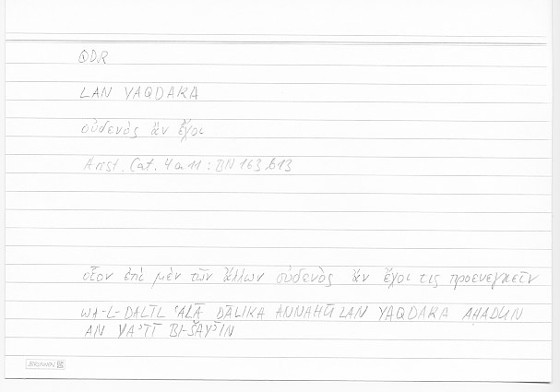 QDR
LAN YAQDARA
οὐδενὸς ἂν ἔχοι
Arist. Cat. 4 a 11 : BN 163 b13
οἷον ἐπὶ μὲν τῶν ἄλλων οὐδενὸς ἂν ἔχοι τις προενεγκεῖν
WA-L-DALĪL ʿALĀ ḎĀLIKA ANNAHŪ LAN YAQDARA AḤADUN
AN YAʾTĪ BI-ŠAYʾIN